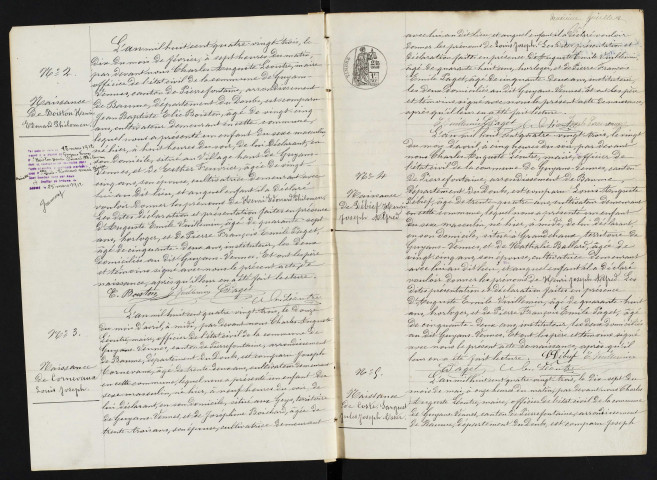 No 2.
Naissance
De Boiston Henri
Edouard Philémon
L'an mil huit cent quatre-vingt-trois, le
dix du mois de février, à sept heures du matin,
par devant nous Charles Auguste Léontre, maire
officier de l'état civil de la commune de Guyans-
Vennes, canton de Pierrefontaine, arrondissement
de Baume, département du Doubs, est comparu
Jean Baptiste Elie Boiston, âgé de vingt cinq
ans, cultivateur demeurant en cette commune,
lequel nous a présenté un enfant du sexe masculin,
né hier, à huit heures du soir, de lui déclarant, en
son domicile, situé au village haut de Guyans-
Vennes, et de Esther
cinq ans, son épouse, cultivatrice demeurant avec
lui au dit lieu, et auquel enfant il a déclaré
vouloir donner les prénoms de Henri Edouard Philémon.
Les dites déclaration et présentation faites en présence
d'Auguste Emile Vuillemin, âgé de quarante-sept
ans, horloger, et de Pierre François Emile Paget,
âgé de cinquante deux ans, instituteur, les deux
domiciliés au dit Guyans-Vennes. Et ont les père
et témoins signé avec nous le présent acte de
naissance, après qu'il leur en a été fait lecture.
E. Boiston Vuillemin Paget
No 3.
Naissance
De Cornevaux
Louis Joseph
L'an mil huit cent quatre-vingt-trois, le douze
du mois d'avril, à midi, par devant nous Charles Auguste
Léontre, maire, officier de l'état civil de la commune de
Guyans-Vennes, canton de Pierrefontaine, arrondissement
de Baume, département du Doubs, est comparu Joseph
Cornevaux, âgé de trente deux ans, cultivateur demeurant
en cette commune, lequel nous a présenté un enfant du
sexe masculin, né hier, à neuf heures du soir, de
lui déclarant, en son domicile, situé aux territoire
de Guyans-Vennes, et de Joséphine Boichard, âgée de
trente trois ans, son épouse, cultivatrice demeurant
avec lui au dit lieu, et auquel enfant il a déclaré vouloir
donner les prénoms de Louis Joseph. Les dites présentation et
déclaration faites en présence d'Auguste Emile Vuillemin,
âgé de quarante huit ans, horloger, et de Pierre François
Emile Paget, âgé de cinquante deux ans, instituteur,
les deux domiciliés au dit Guyans-Vennes. Et ont les père
et témoins signé avec nous le présent acte de naissance,
après qu'il leur en a été fait lecture.
No 4
Naissance
De Lebief Henri
Joseph Alfred
L'an mil huit cent quatre-vingt-trois, le vingt
du mois d'avril, à cinq heures du soir, par devant
nous Charles Auguste Léontre, maire, officier de
l'état civil de la commune de Guyans-Vennes, canton
de Pierrefontaine, arrondissement de Baume,
département du Doubs, est comparu Louis Auguste
Lebief, âgé de trente quatre ans, cultivateur demeurant
en cette commune, lequel nous a présenté un enfant
du sexe masculin, né hier, à midi, de lui déclarant,
en son domicile, situé à Grandchamp, territoire de
Guyans-Vennes, et de Nathalie Balland, âgée de
vingt cinq ans, son épouse, cultivatrice demeurant
avec lui au dit lieu, et auquel enfant il a déclaré
vouloir donner les prénoms de Henri Joseph Alfred. Les
dites présentation et déclaration faites en présence
d'Auguste Emile Vuillemin, âgé de quarante-huit
ans, horloger, et de Pierre François Emile Paget, âgé
de cinquante deux ans, instituteur, les deux domiciliés
au dit Guyans-Vennes. Et ont les père et témoins signé
avec nous le présent acte de naissance, après qu'il
leur en a été fait lecture.
Paget
No 5.
Naissance
L'an mil huit cent quatre-vingt-trois, le dix sept du
mois de mai, à onze heures du matin, par devant nous Charles
Auguste Léontre, maire, officier de l'état civil de la commune
de Guyans-Vennes, canton de Pierrefontaine, arrondissement
de Baume, département du Doubs, est comparu Joseph